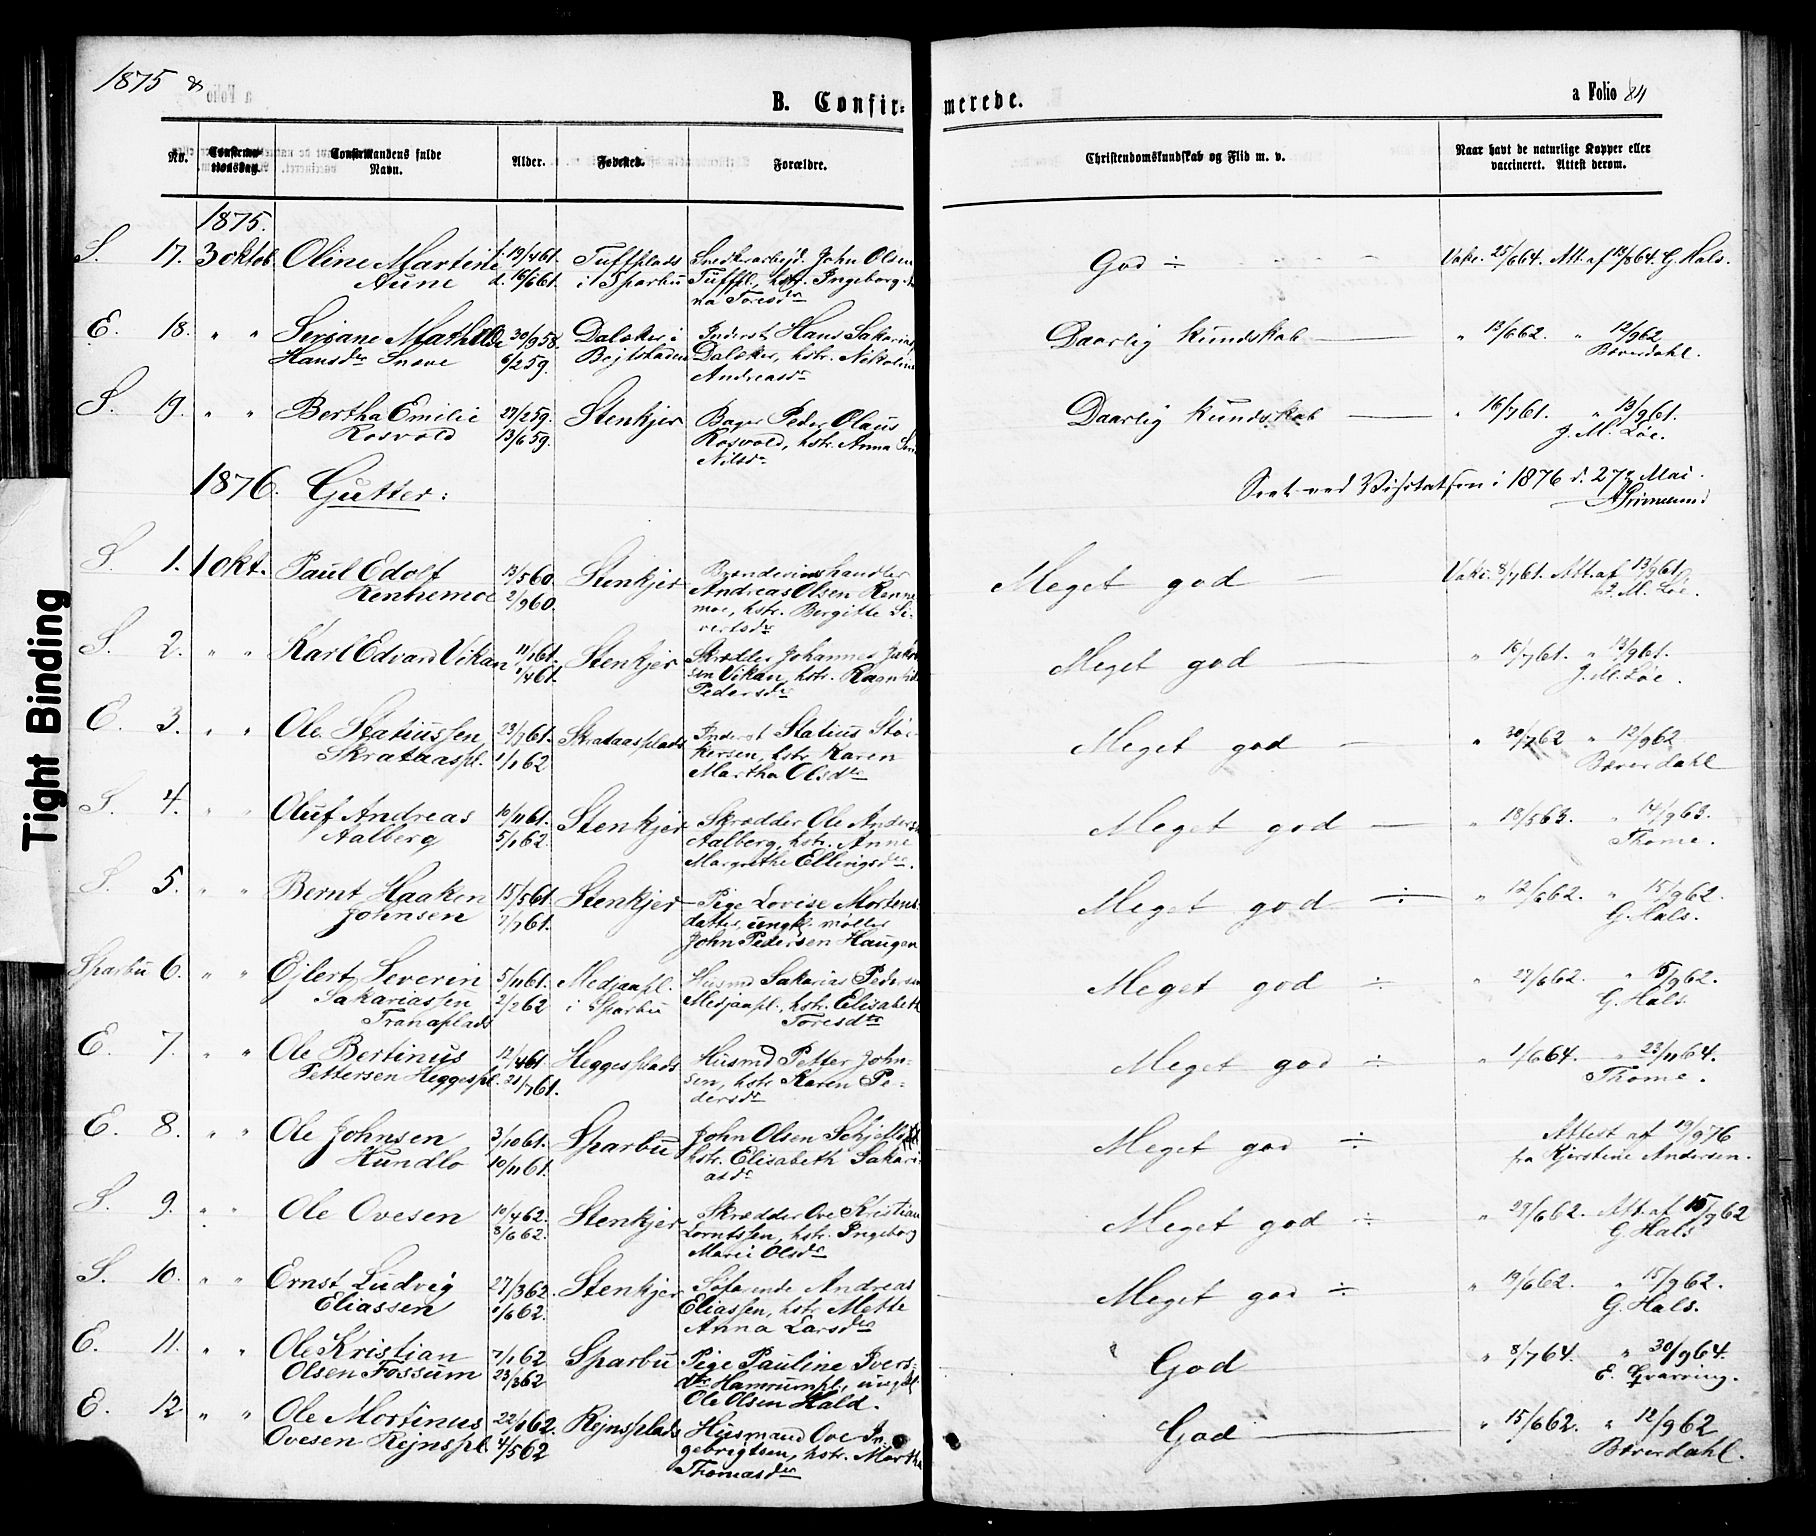 1875
B. Confir- merede.
a Folio 84
No.
Confirma-
tionsdag.
Confirmandens fulde
Navn.
Alder.
Fødested.
Forældre.
Christendomskundskab og Flid m. v.
Naar havt de naturlige Kopper eller
vaccineret. Attest derom.
1875.
S. 17. 3 oktob. Oline Martine f. 19/4 61. Tuffplads Snedkerarbejd. John Olsen God ÷ Vakc. 25/6 64. Att. af 64. G. Hals.
Aune d. 16/6 61. i Sparbu Tuffpl., hstr. Ingeborg-
na Toresdr
E. 18. " " Seriane Mathilde 30/9 58. Dalæker i Inderst Hans Sakarias. Daarlig kundskab " 13/6 62. " 12/9 62
Hansdr Snøve 6/2 59. Bejtstaden Dalæker, hstr. Nikoline Bæverdahl.
Andreasdr
S. 19. " " Bertha Emilie 27/2 59. Stenkjer Bager Peder Olaus Daarlig kundskab " 16/7 61. " 13/9 61.
Rosvold 13/6 59. Rosvold, hstr. Anna J. M. Løe.
Nilsdr
1876. Gutter: Seet ved Visitatsen i 1876 d. 27de Mai.
AGrimelund
S. 1. 1 okt. Paul Edolf 13/5 60. Stenkjer Brændevinshandler Meget god Vakc. 8/7 61. Att. af 13/9 61.
Rennemoe 2/9 60. Andreas Olsen Renne- J. M. Løe.
moe, hstr. Birgitte Si-
vertsdr
S. 2. " " Karl Edvard Vikan 11/1 61. Stenkjer Skrædder Johannes Jakob- Meget god " 16/7 61. " 13/9 61.
1/4 61. sen Vikan, hstr. Ragnhild J. M. Løe.
Pedersdr
E. 3. " " Ole Statiussen 23/7 61. Skrataasplads Inderst Statius Stør- Meget god " 30/7 62 " 12/9 62
Skrataaspl. 1/1 62 kersen, hstr. Karen Bæverdahl
Martha Olsdtr
S. 4. " " Oluf Andreas 10/11 61. Stenkjer Skrædder Ole Anders. Meget god " 18/5 63. " 14/9 63.
Aalberg 5/1 62. Aalberg, hstr. Anne Thome.
Margrethe Ellingsdr.
S. 5. " " Bernt Haaken 15/5 61. Stenkjer Pige Lovise Mortens- Meget god ÷ " 12/6 62. " 15/9 62.
Johnsen 7/7 61. datter, ungk. møller G. Hals.
John Pedersen Haugen
Sparbu 6. " " Ejlert Severin 5/11 61. Medjaapl. Husmd Sakarias Pedersen Meget god ÷ " 27/6 62. " 15/9 62.
Sakariassen 2/2 62 i Sparbu Medjaapl., hstr. Elisabeth G. Hals.
Tranaplads Toresdtr
E. 7. " " Ole Bertinus 12/4 61. Heggesplads Husmd Petter John- Meget god ÷ " 1/6 64. " 23/11 64.
Pettersen Heggespl. 21/7 61. sen, hstr Karen Pe- Thome.
dersdr
E. 8. " " Ole Johnsen 3/10 61. Sparbu John Olsen Meget god ÷ Attest af 19/9 76
Hundlo 10/11 61. hstr. Elisabeth Sakari- fra Kjerstine Andersen.
asdr
S. 9. " " Ole Ovesen 10/4 62. Stenkjer Skrædder Ove Kristian Meget god ÷ " 27/6 62. Att. af 15/9 62
8/6 62. Lorntssen, hstr. Ingeborg G. Hals
Marie Olsdr
S. 10. " " Ernst Ludvig 27/3 62. Stenkjer Søfarende Andreas Meget god ÷ " 19/6 62. " 15/9 62.
Eliassen 1/6 62. Eliassen, hstr. Mette G. Hals.
Anna Larsdtr
E. 11. " " Ole Kristian 7/1 62. Sparbu Pige Pauline Ivers- God " 8/7 64. " 30/9 64.
Olsen Fossum 23/3 62 dtr Hamrumpl., ungkl E. Qvarving.
Ole Olsen Hald.
E. 12 " " Ole Mortinus 22/1 62. Rejnsplads Husmand Ove In- God " 15/6 62. " 12/9 62
Ovesen Rejnspl. 4/5 62 gebrigtsen, hstr. Martha Bæverdahl.
Thomasdtr
Tight Binding